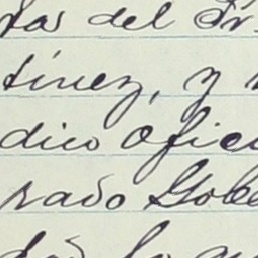 tas del Sr.
tínez, y
dico ofici
rado Gobe